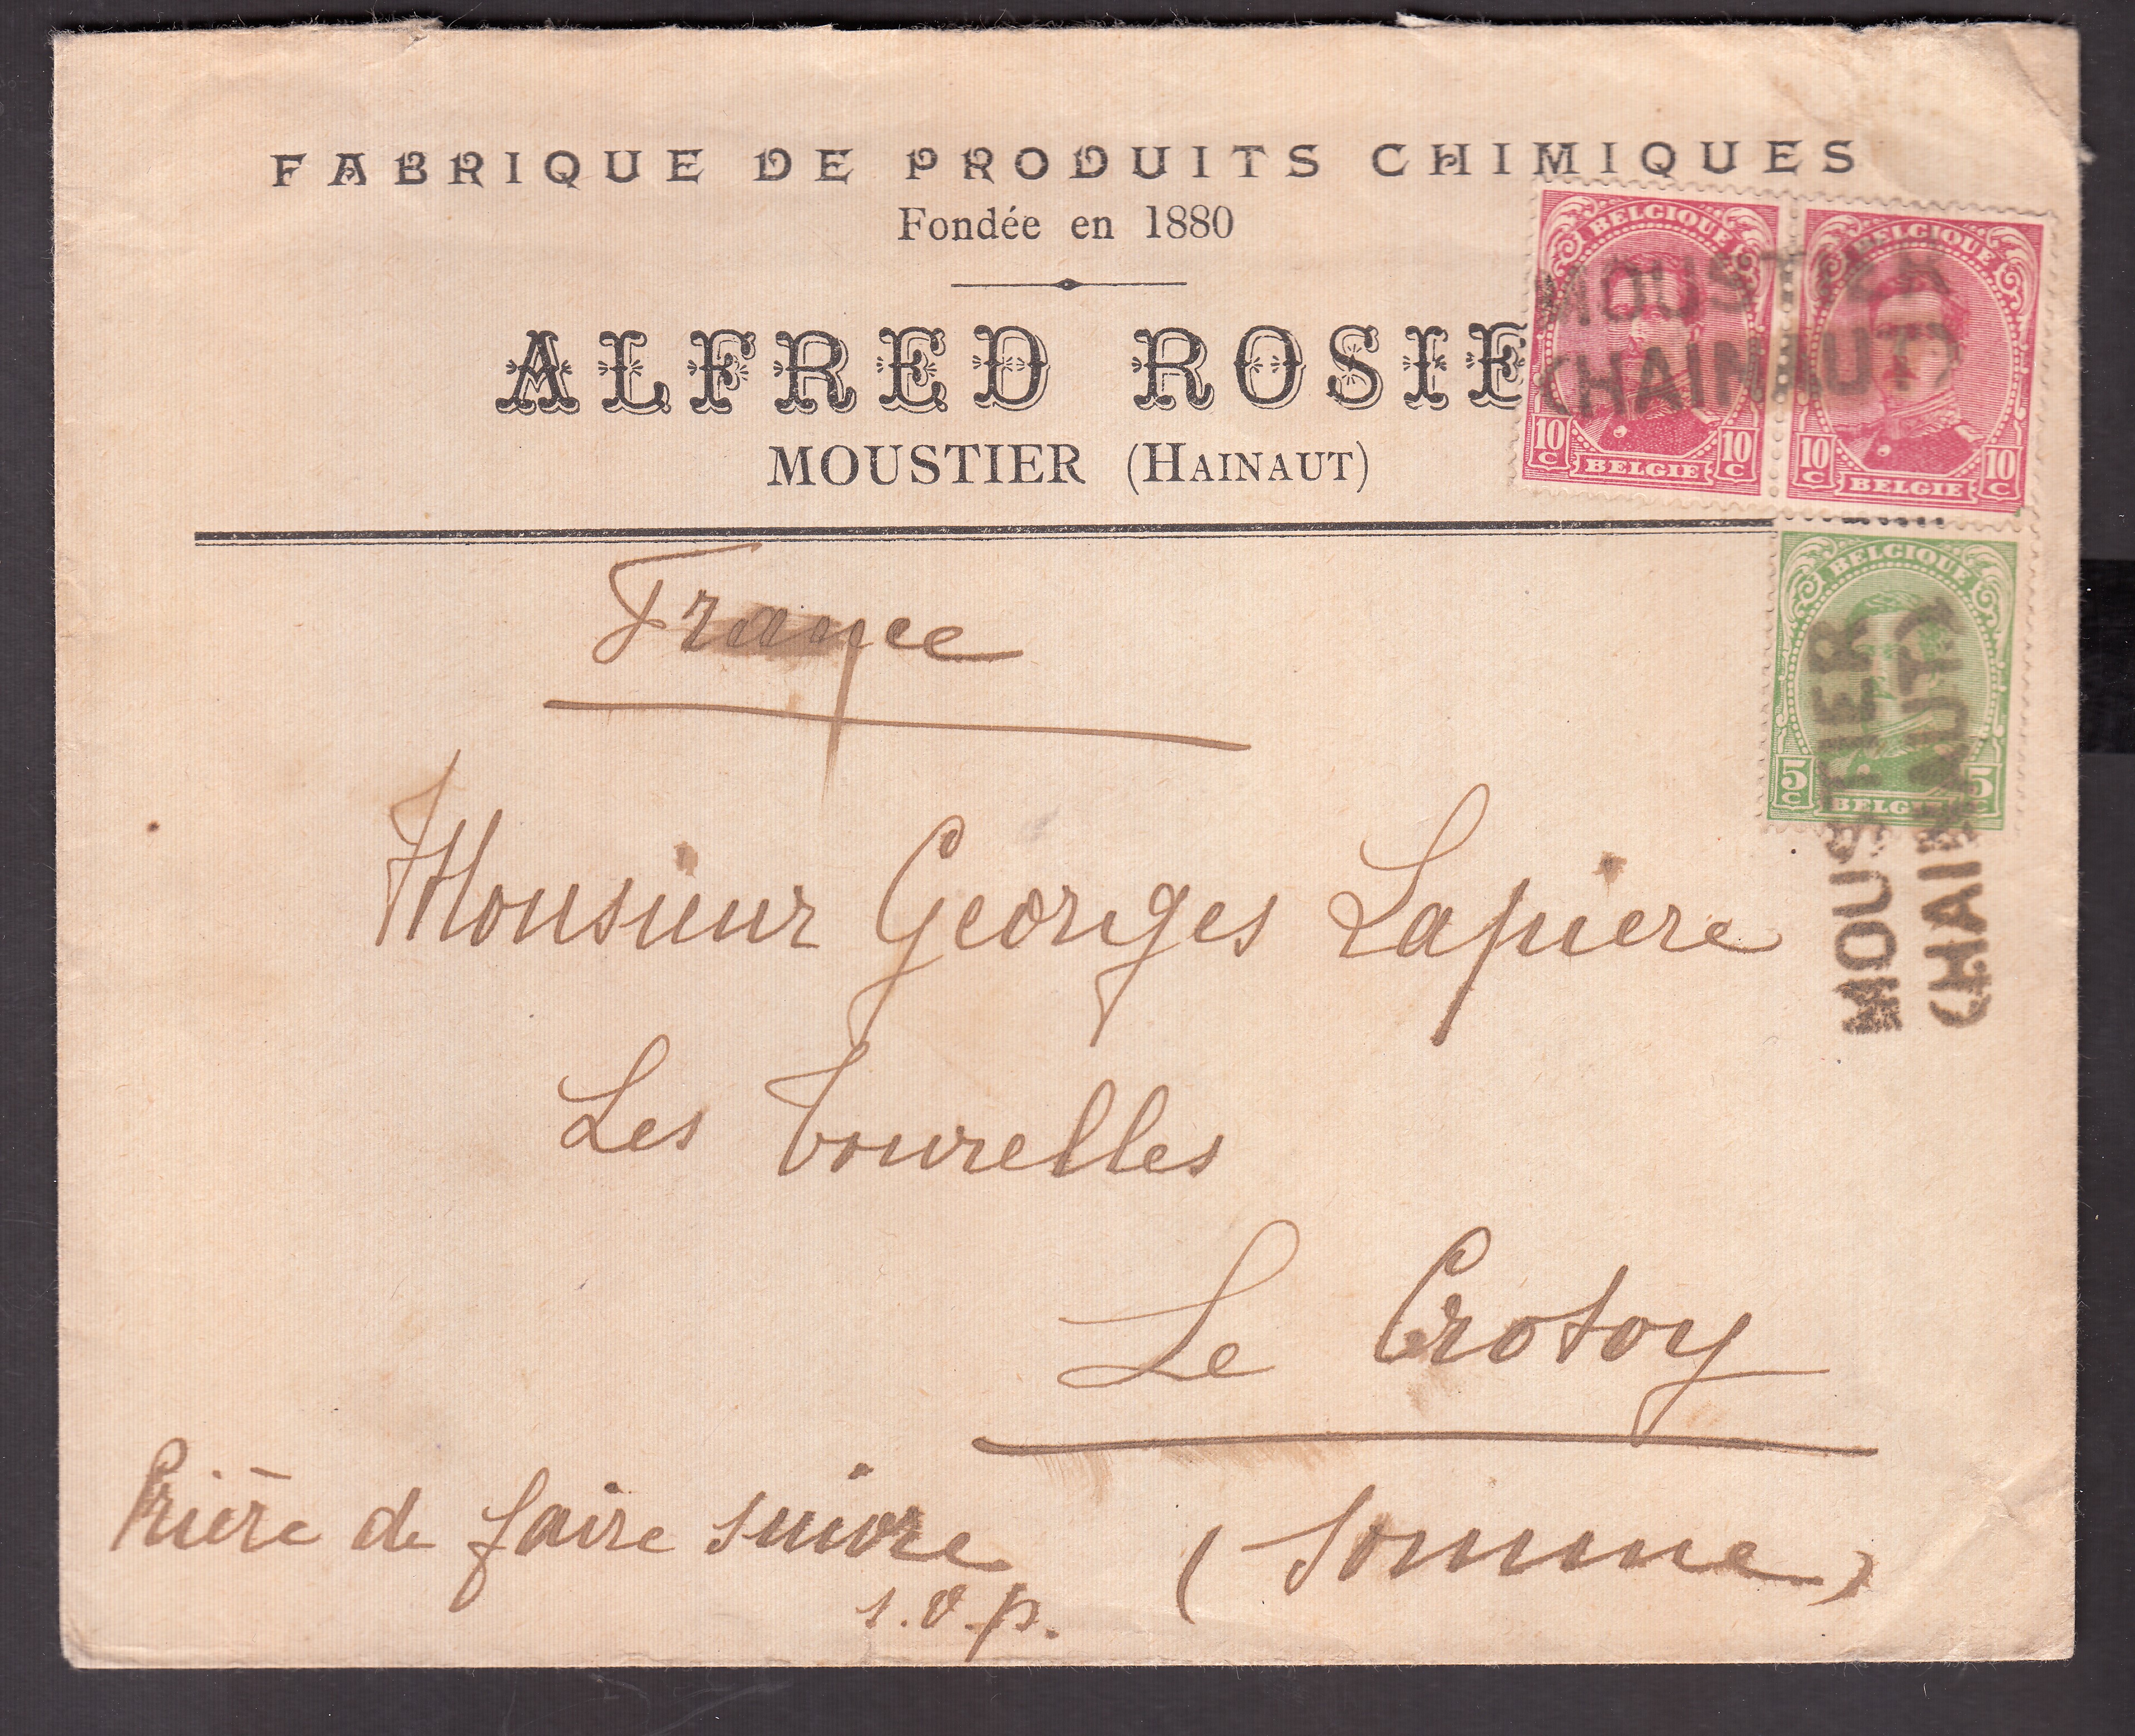 FABRIQUE DE PRODUITS CHIMIQUES
Fondée en 1880
ALFRED ROSIE
MOUSTIER (HAINAUT)
BELGIQUE
10 C BELGIE 10 C
BELGIQUE
10 C BELGIE 10 C
MOUSTIER
(HAINAUT)
BELGIQUE
5 C BELGIE 5 C
MOUSTIER
(HAINAUT)
France
Monsieur Georges Lapiere
Les Tourelles
Le Crotoy
(Somme)
Prière de faire suivre
s.v.p.